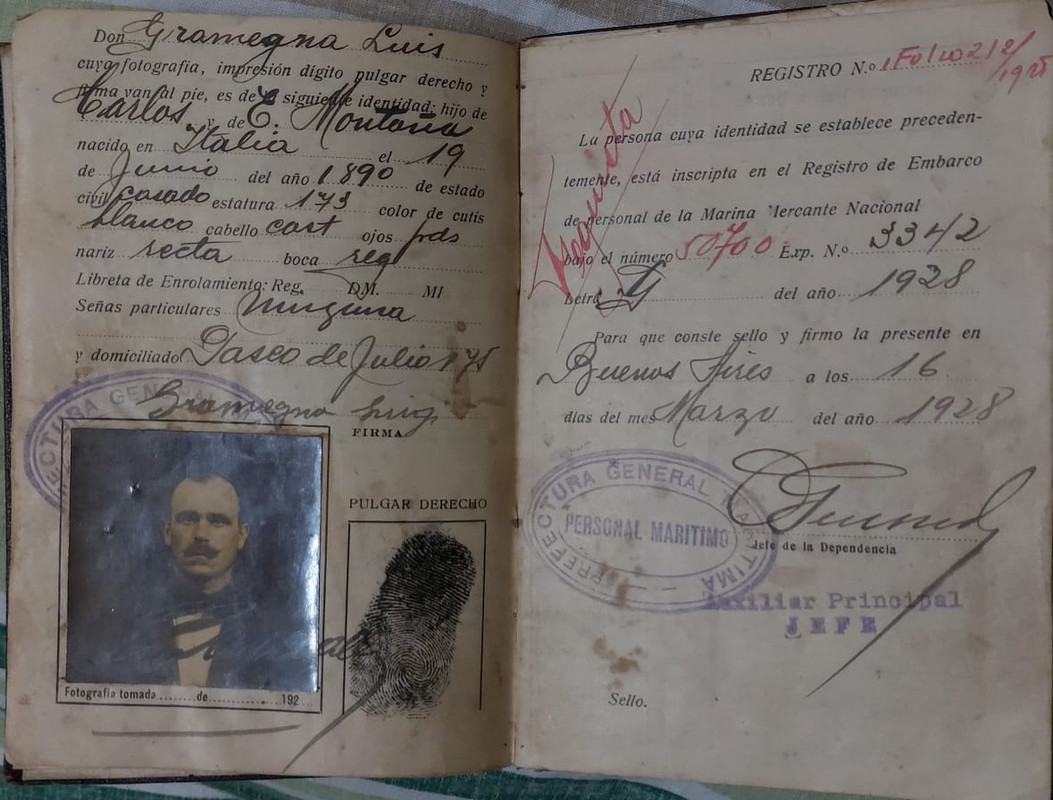 Don Gramegna Luis
cuya fotografía, impresión dígito pulgar derecho y
firma van al pie, es de la siguiente identidad: hijo de
Carlos y de E. Montaña
nacido en Italia el 19
de Junio del año 1890 de estado
civil casado estatura 173 color de cutis
blanco cabello cast ojos pds
nariz recta boca reg
Libreta de Enrolamiento: Reg. DM. MI
Señas particulares Ninguna
y domiciliado Paseo de Julio 175
PREFECTURA GENERAL
Gramegna Luig
FIRMA
PULGAR DERECHO
Fotografía tomada de 192
REGISTRO N.o Folio 212/
1928
La persona cuya identidad se establece preceden-
temente, está inscripta en el Registro de Embarco
de personal de la Marina Mercante Nacional
bajo el número 50700 Exp. N.o 3342
Letra del año 1928
Para que conste sello y firmo la presente en
Buenos Aires a los 16
días del mes Marzo del año 1928
PREFECTURA GENERAL MARITIMA
PERSONAL MARITIMO
Jefe de la Dependencia
Auxiliar Principal
JEFE
Sello.